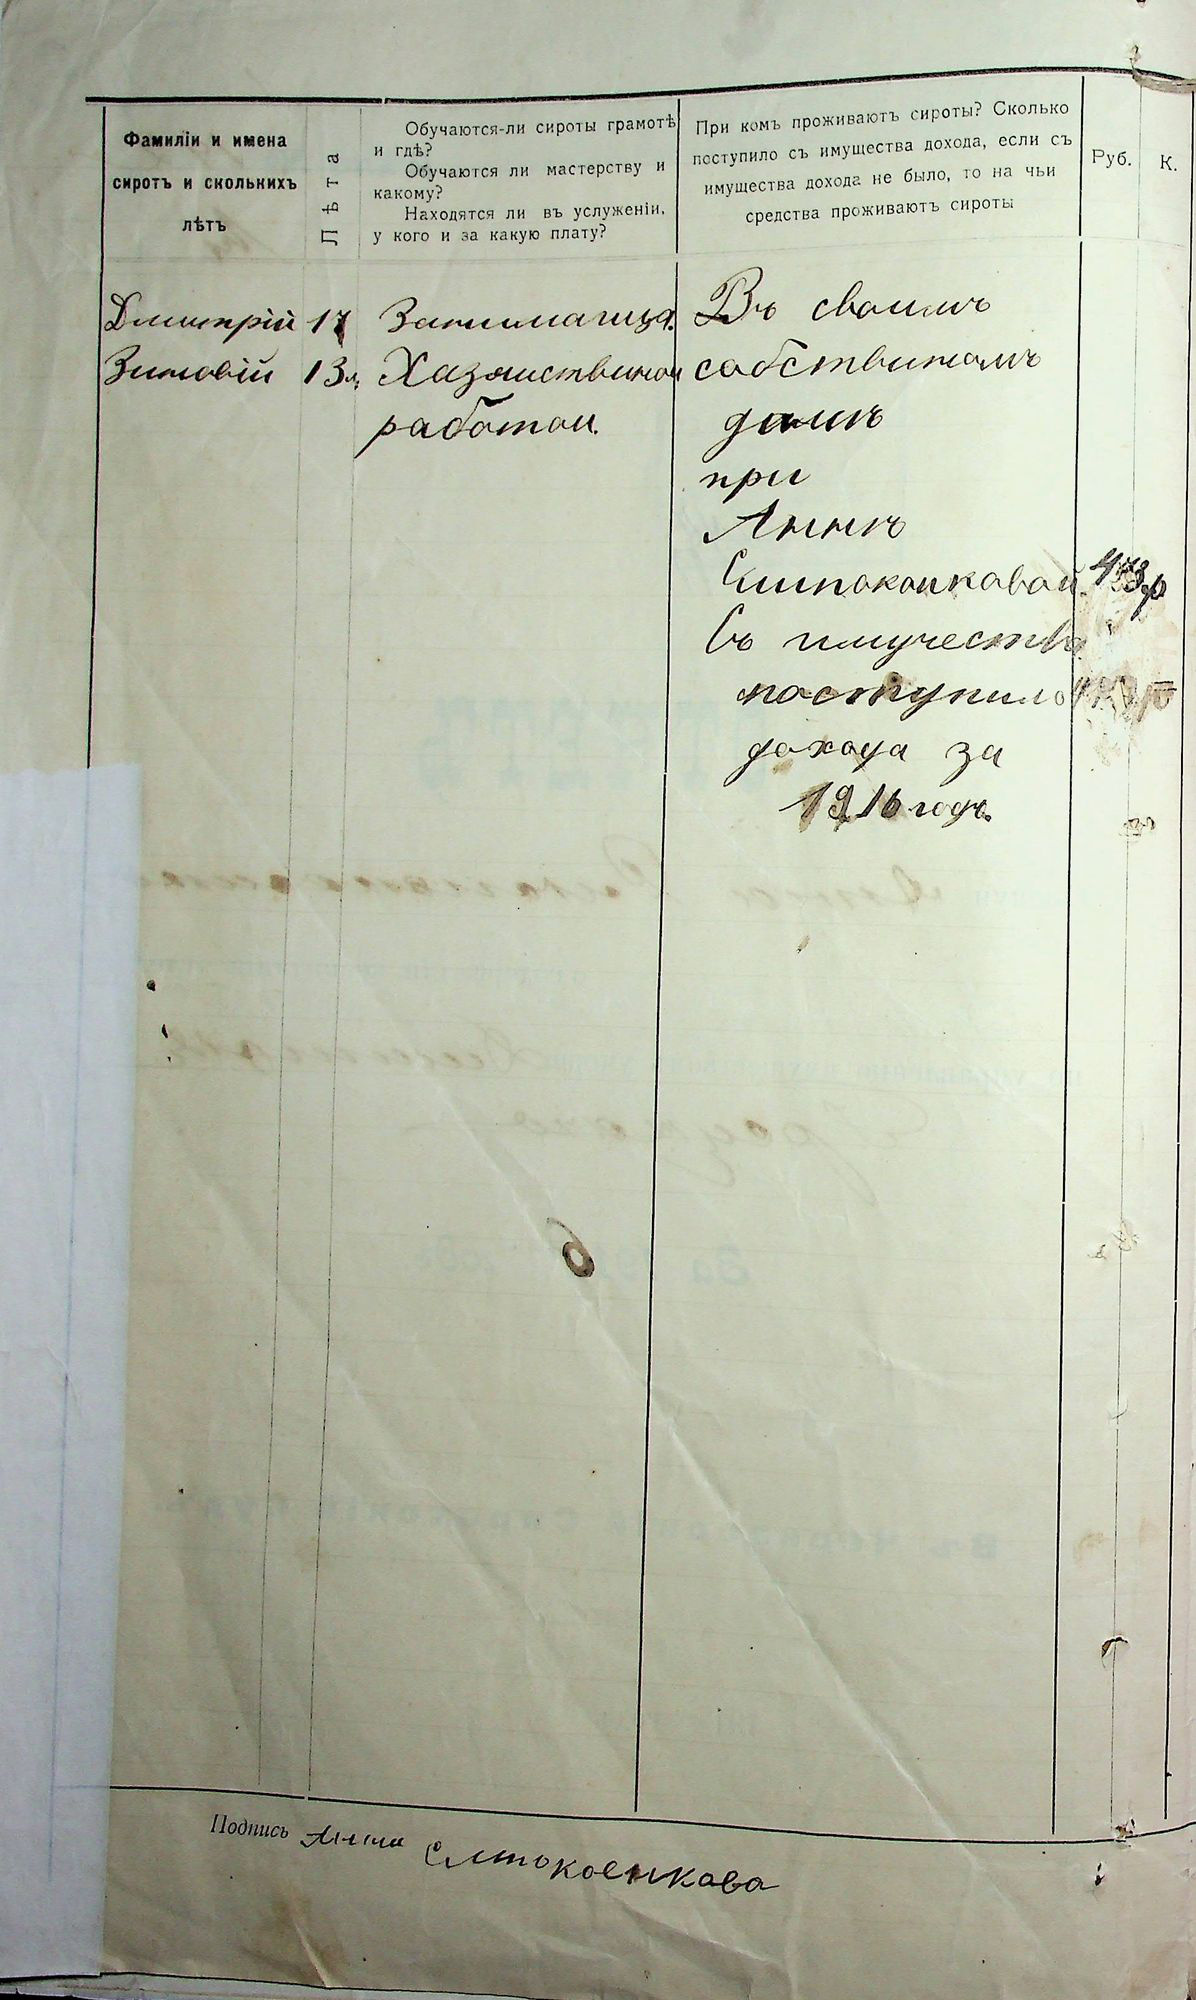 Фамиліи и имена
сиротъ и сколькихъ
лѣтъ
Лѣта
Обучаются-ли сироты грамотѣ
и гдѣ?
Обучаются ли мастерству и
какому?
Находятся ли въ услуженіи,
у кого и за какую плату?
При комъ проживаютъ сироты? Сколько
поступило съ имущества дохода, если съ
имущества дохода не было, то на чьи
средства проживаютъ сироты
Руб.
К.
Дмитрій 17
Зиновій 13 л.
Занимаются
Хазяиствиной
работои.
Въ своимъ
собствиномъ
доми
при
Аннѣ
Съ имучества
поступило
дохода за
1916 годъ.
6
Подпись Анна